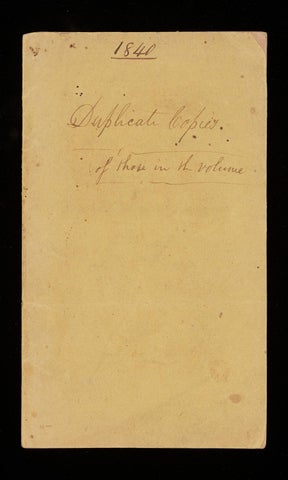 1840
Duplicate Copies.
of those in the volume.